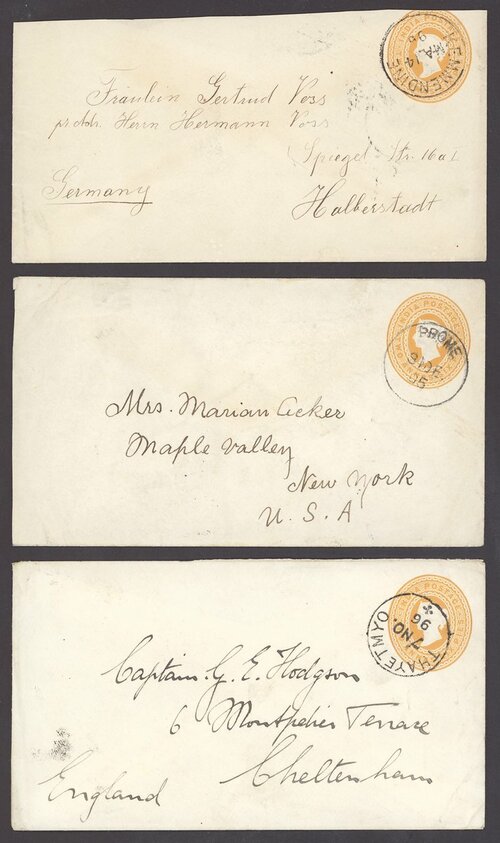 KEMMENDINE
14 MA.
95
Fräulein Gertrud Voss
pr. Adr. Herrn Hermann Voss
Spiegel Str. 16a I
Halberstadt
Germany
INDIA POSTAGE
PROME
95
Mrs. Marian Acker
Maple Valley
New York
U. S. A
THAYETMYO.
7 NO.
96
Captain G. E. Hodgson
6 Montpelier Terrace
Cheltenham
England